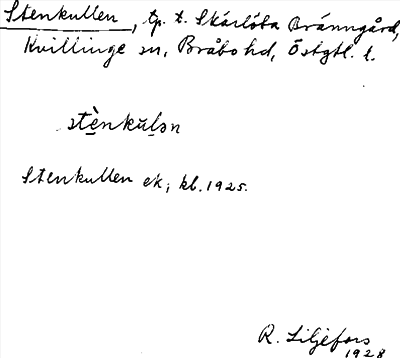 Stenkullen, tp. t. Skärlöta Bränngård,
Kvillinge sn, Bråbo hd, Östgtl. l.
stènkūlən
Stenkullen ek, kl. 1925.
R. Liljefors
1928